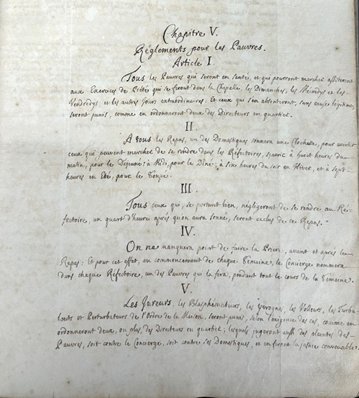 Chapitre V.
Réglements pour les Pauvres.
Article I
Tous les Pauvres qui seront en santé, et qui pourront marcher assisteront
aux Exercices de Piété qui se feront dans la Chapelle les Dimanches, les Mercredis et les
Vendredys, et les autres Jours extraordinaires. Et ceux qui s'en absenteront, sans excuse légitime,
seront punis, comme en ordonneront deux des Directeurs en quartier.
II
A tous les Repas, un des Domestiques sonnera une Clochette, pour avertir
ceux qui peuvent marcher de se rendre dans les Réfectoires, savoir à huit heures du
matin, pour le Déjeuné; à Midi pour le Diné; à six heures du soir en Hiver, et à sept
heures en Eté, pour le Soupé.
III.
Tous ceux qui, se portant bien, négligeront de se rendre au Ré-
fectoire, un quart d'heure après qu'on aura sonné, seront exclus de ce Repas.
IV.
On ne manquera point de faire la Prière, avant et après les
Repas: Et pour cet effet, au commencement de chaque Semaine, le Concierge nommera
dans chaque Réfectoire, un des Pauvres qui la fera, pendant tout le cours de la Semaine.
V.
Les Jureurs, les Blasphémateurs, les Yvrognes, les Voleurs, les Turbu-
lents et Perturbateurs de l'Ordre de la Maison, seront punis, selon l'exigence du cas, comme en
ordonneront deux, ou plus des Directeurs en quartier; lesquels jugeront aussi des plaintes des
Pauvres, soit contre le Concierge, soit contre les Domestiques, et en feront la justice convenable.